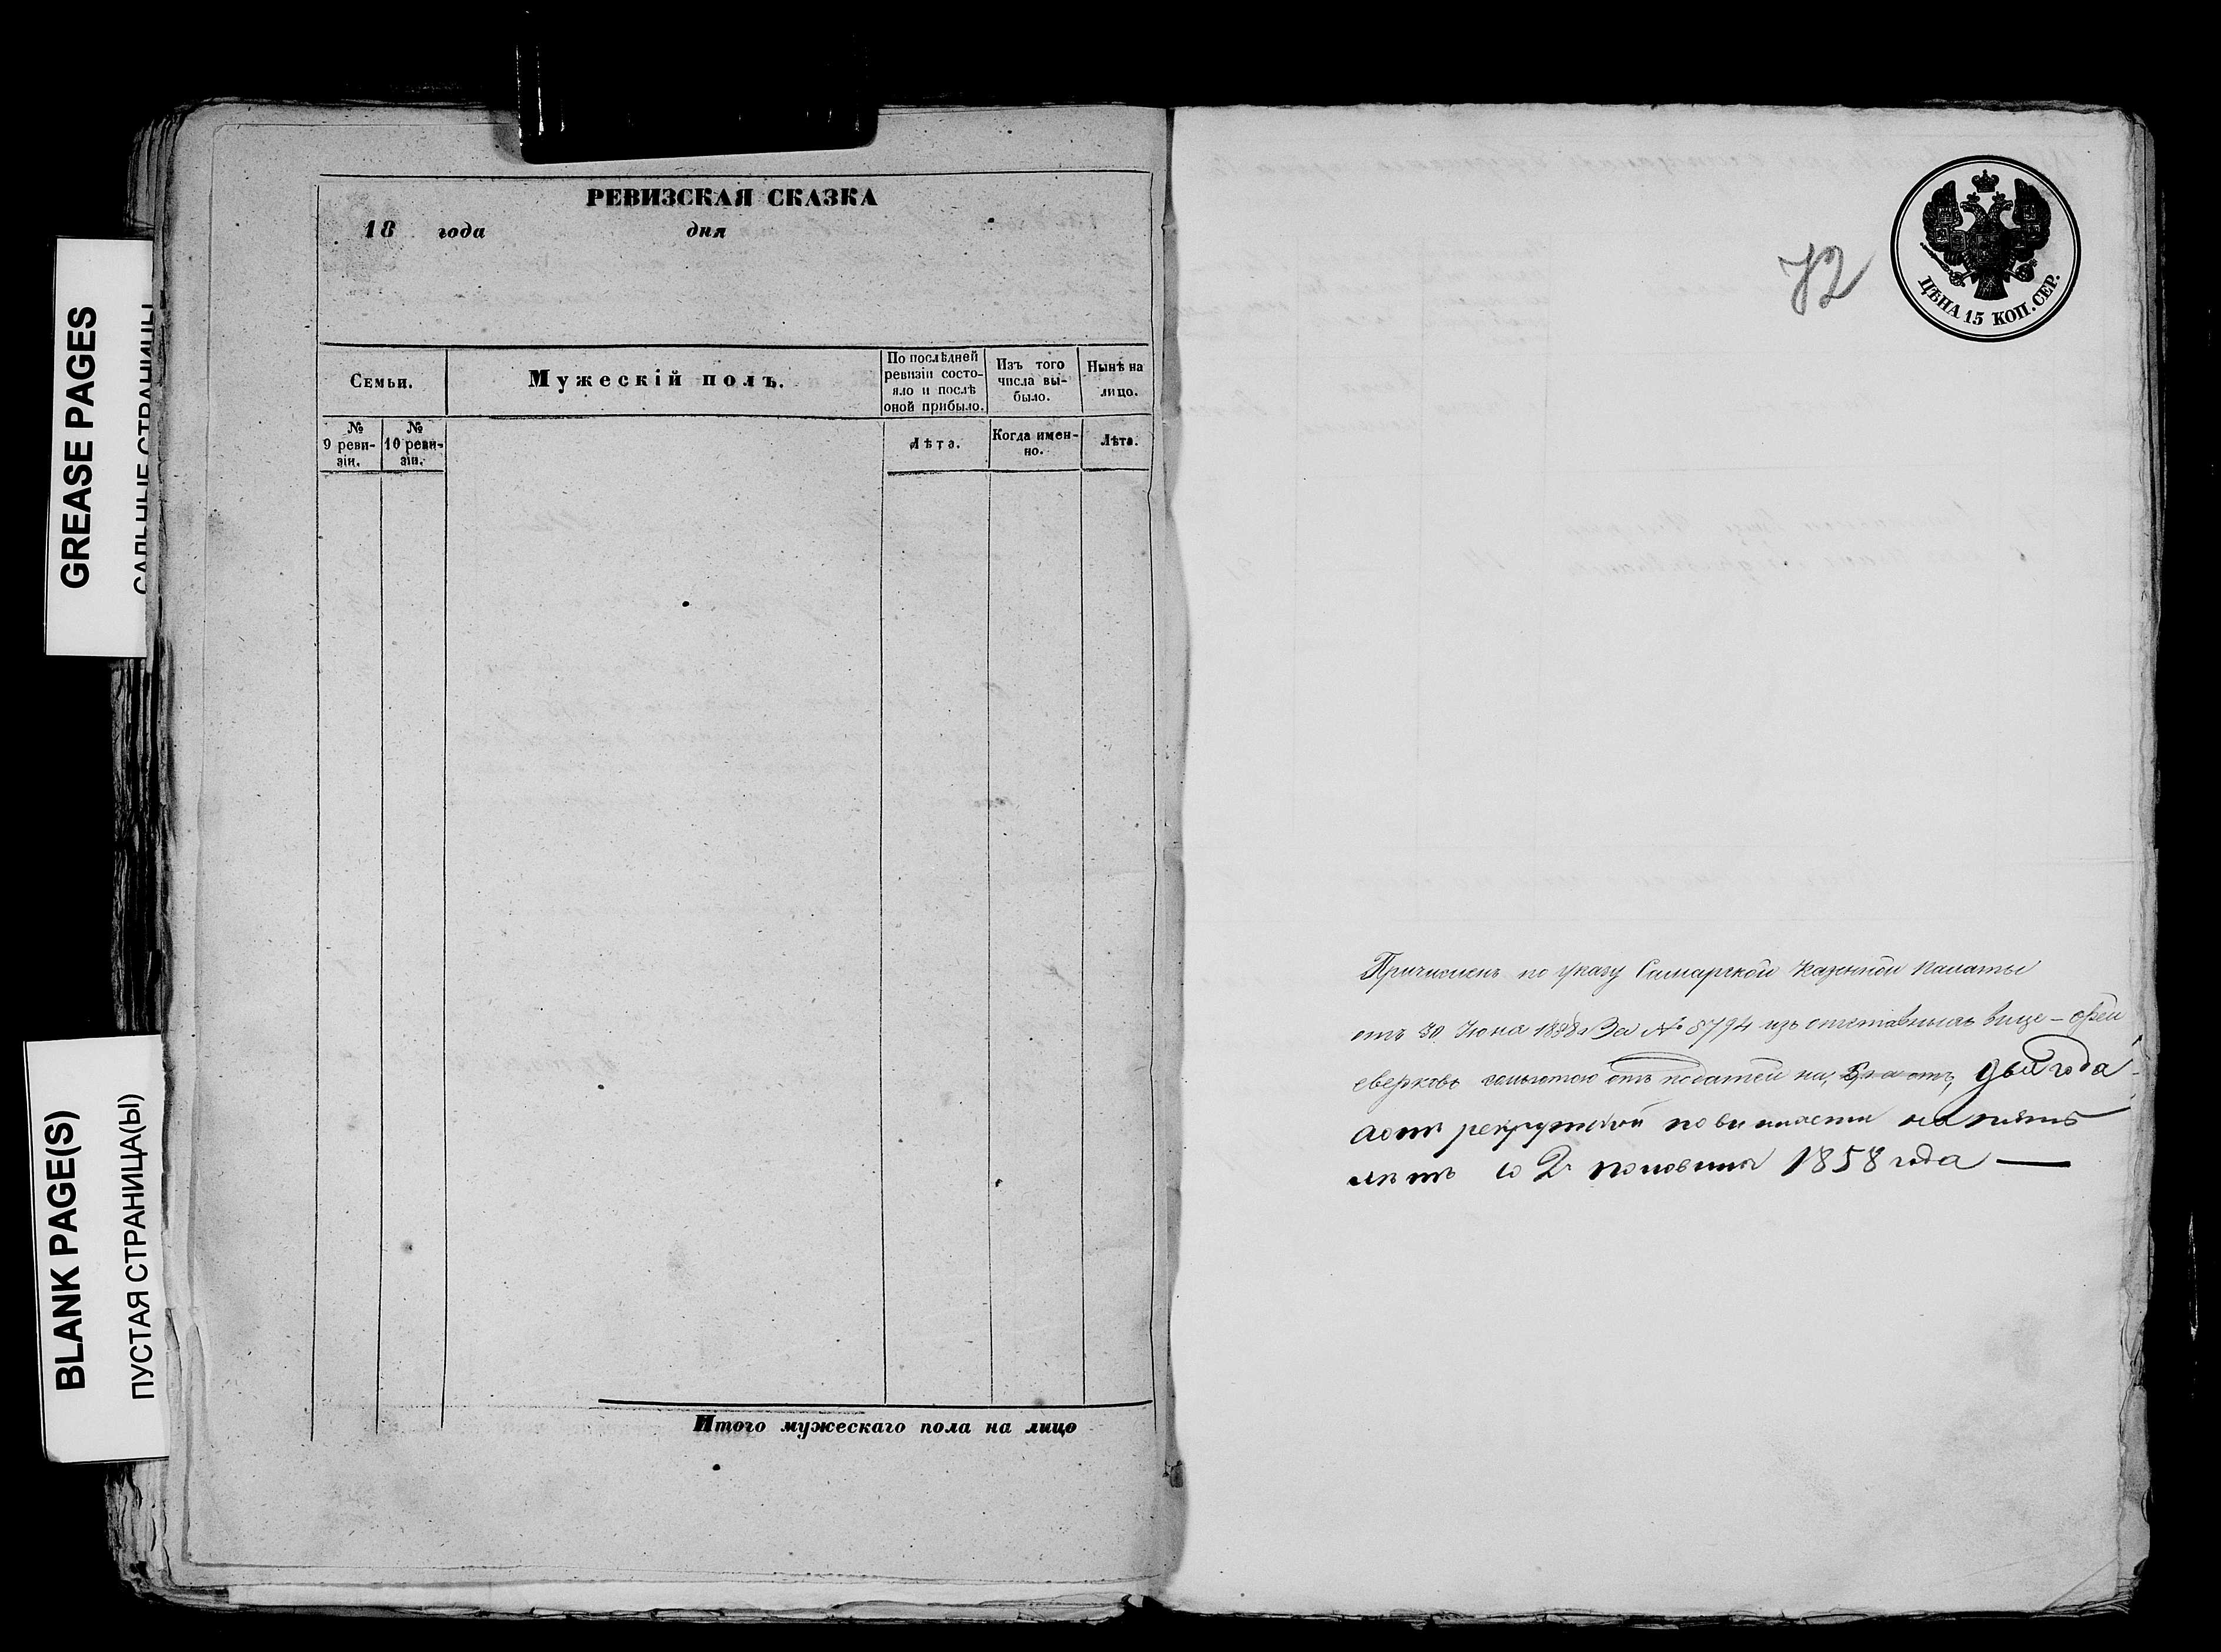 GREASE PAGES
САЛЬНЫЕ СТРАНИЦЫ
BLANK PAGE(S)
ПУСТАЯ СТРАНИЦА(Ы)
РЕВИЗСКАЯ СКАЗКА
18 года дня
Семьи.
Мужескій полъ.
По послѣдней ревизіи состо-
яло и послѣ оной прибыло.
Изъ того числа вы-
было.
Нынѣ на лицо.
№ 9 реви-
зіи.
№ 10 реви-
зіи.
Лѣта.
Когда имен-
но.
Лѣта.
Итого мужескаго пола на лицо
72
ЦѢНА 15 КОП. СЕР.
Причисленъ по указу Самарской Казенной Палаты
отъ 30 Іюня 1858 За № 5794 изъ отставныхъ вице-фей
еверковъ сольготою отъ податей на два года
а отъ рекрутской повинности на пять
лѣтъ со 2й половины 1858 года —